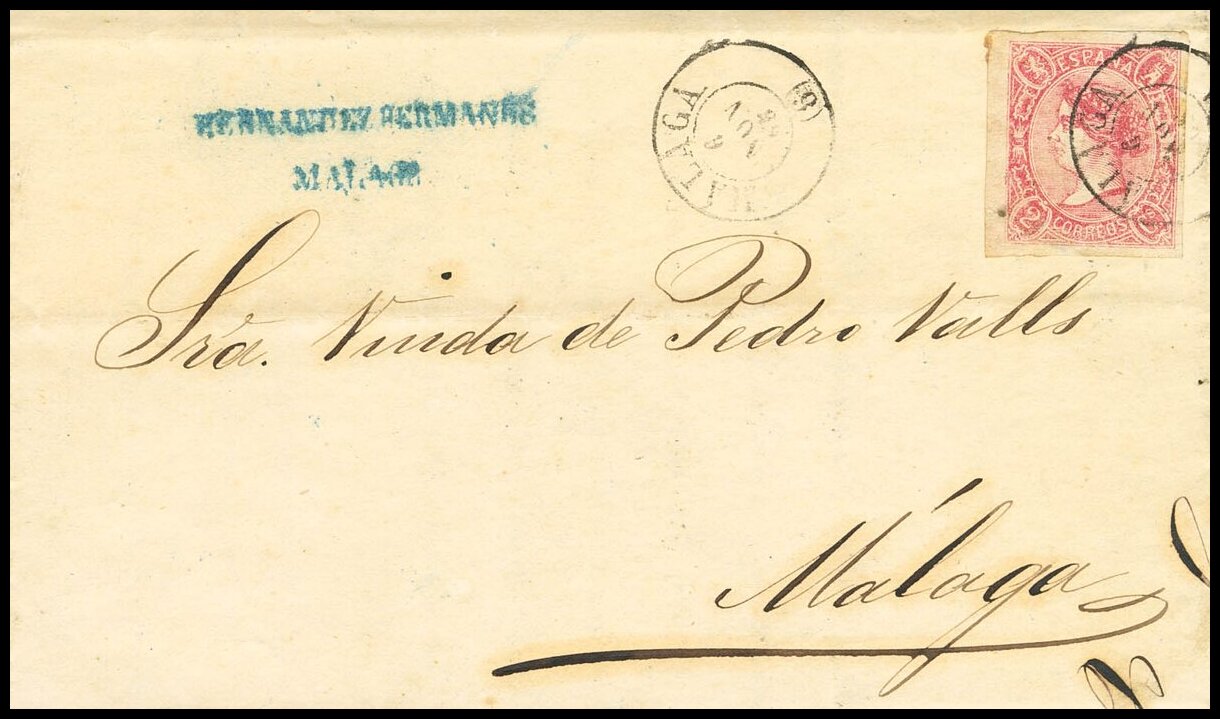 HERNANDEZ HERMANOS
MALAGA
MALAGA (8)
9
NOV
65
ESPAÑA
2 CORREOS
MALAGA
9
NOV
Sra. Viuda de Pedro Valls
Málaga